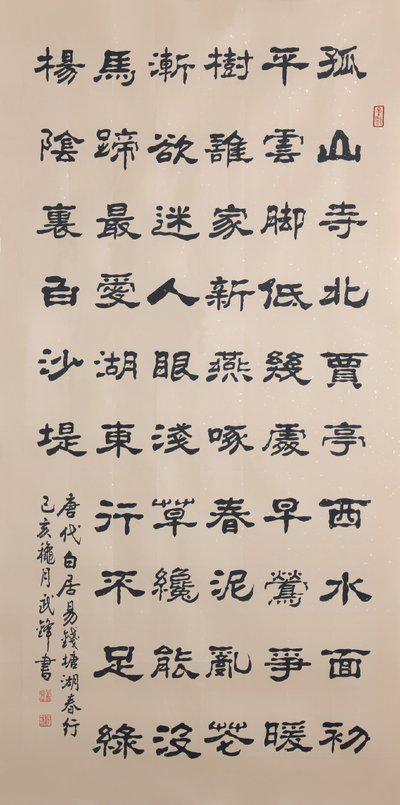 孤山寺北賈亭西水面初
平雲脚低幾處早鶯爭暖
樹誰家新燕啄春泥亂花
漸欲迷人眼淺草纔能沒
馬蹄最愛湖東行不足綠
楊陰裏白沙堤
唐代白居易錢塘湖春行
己亥穐月武鋒書